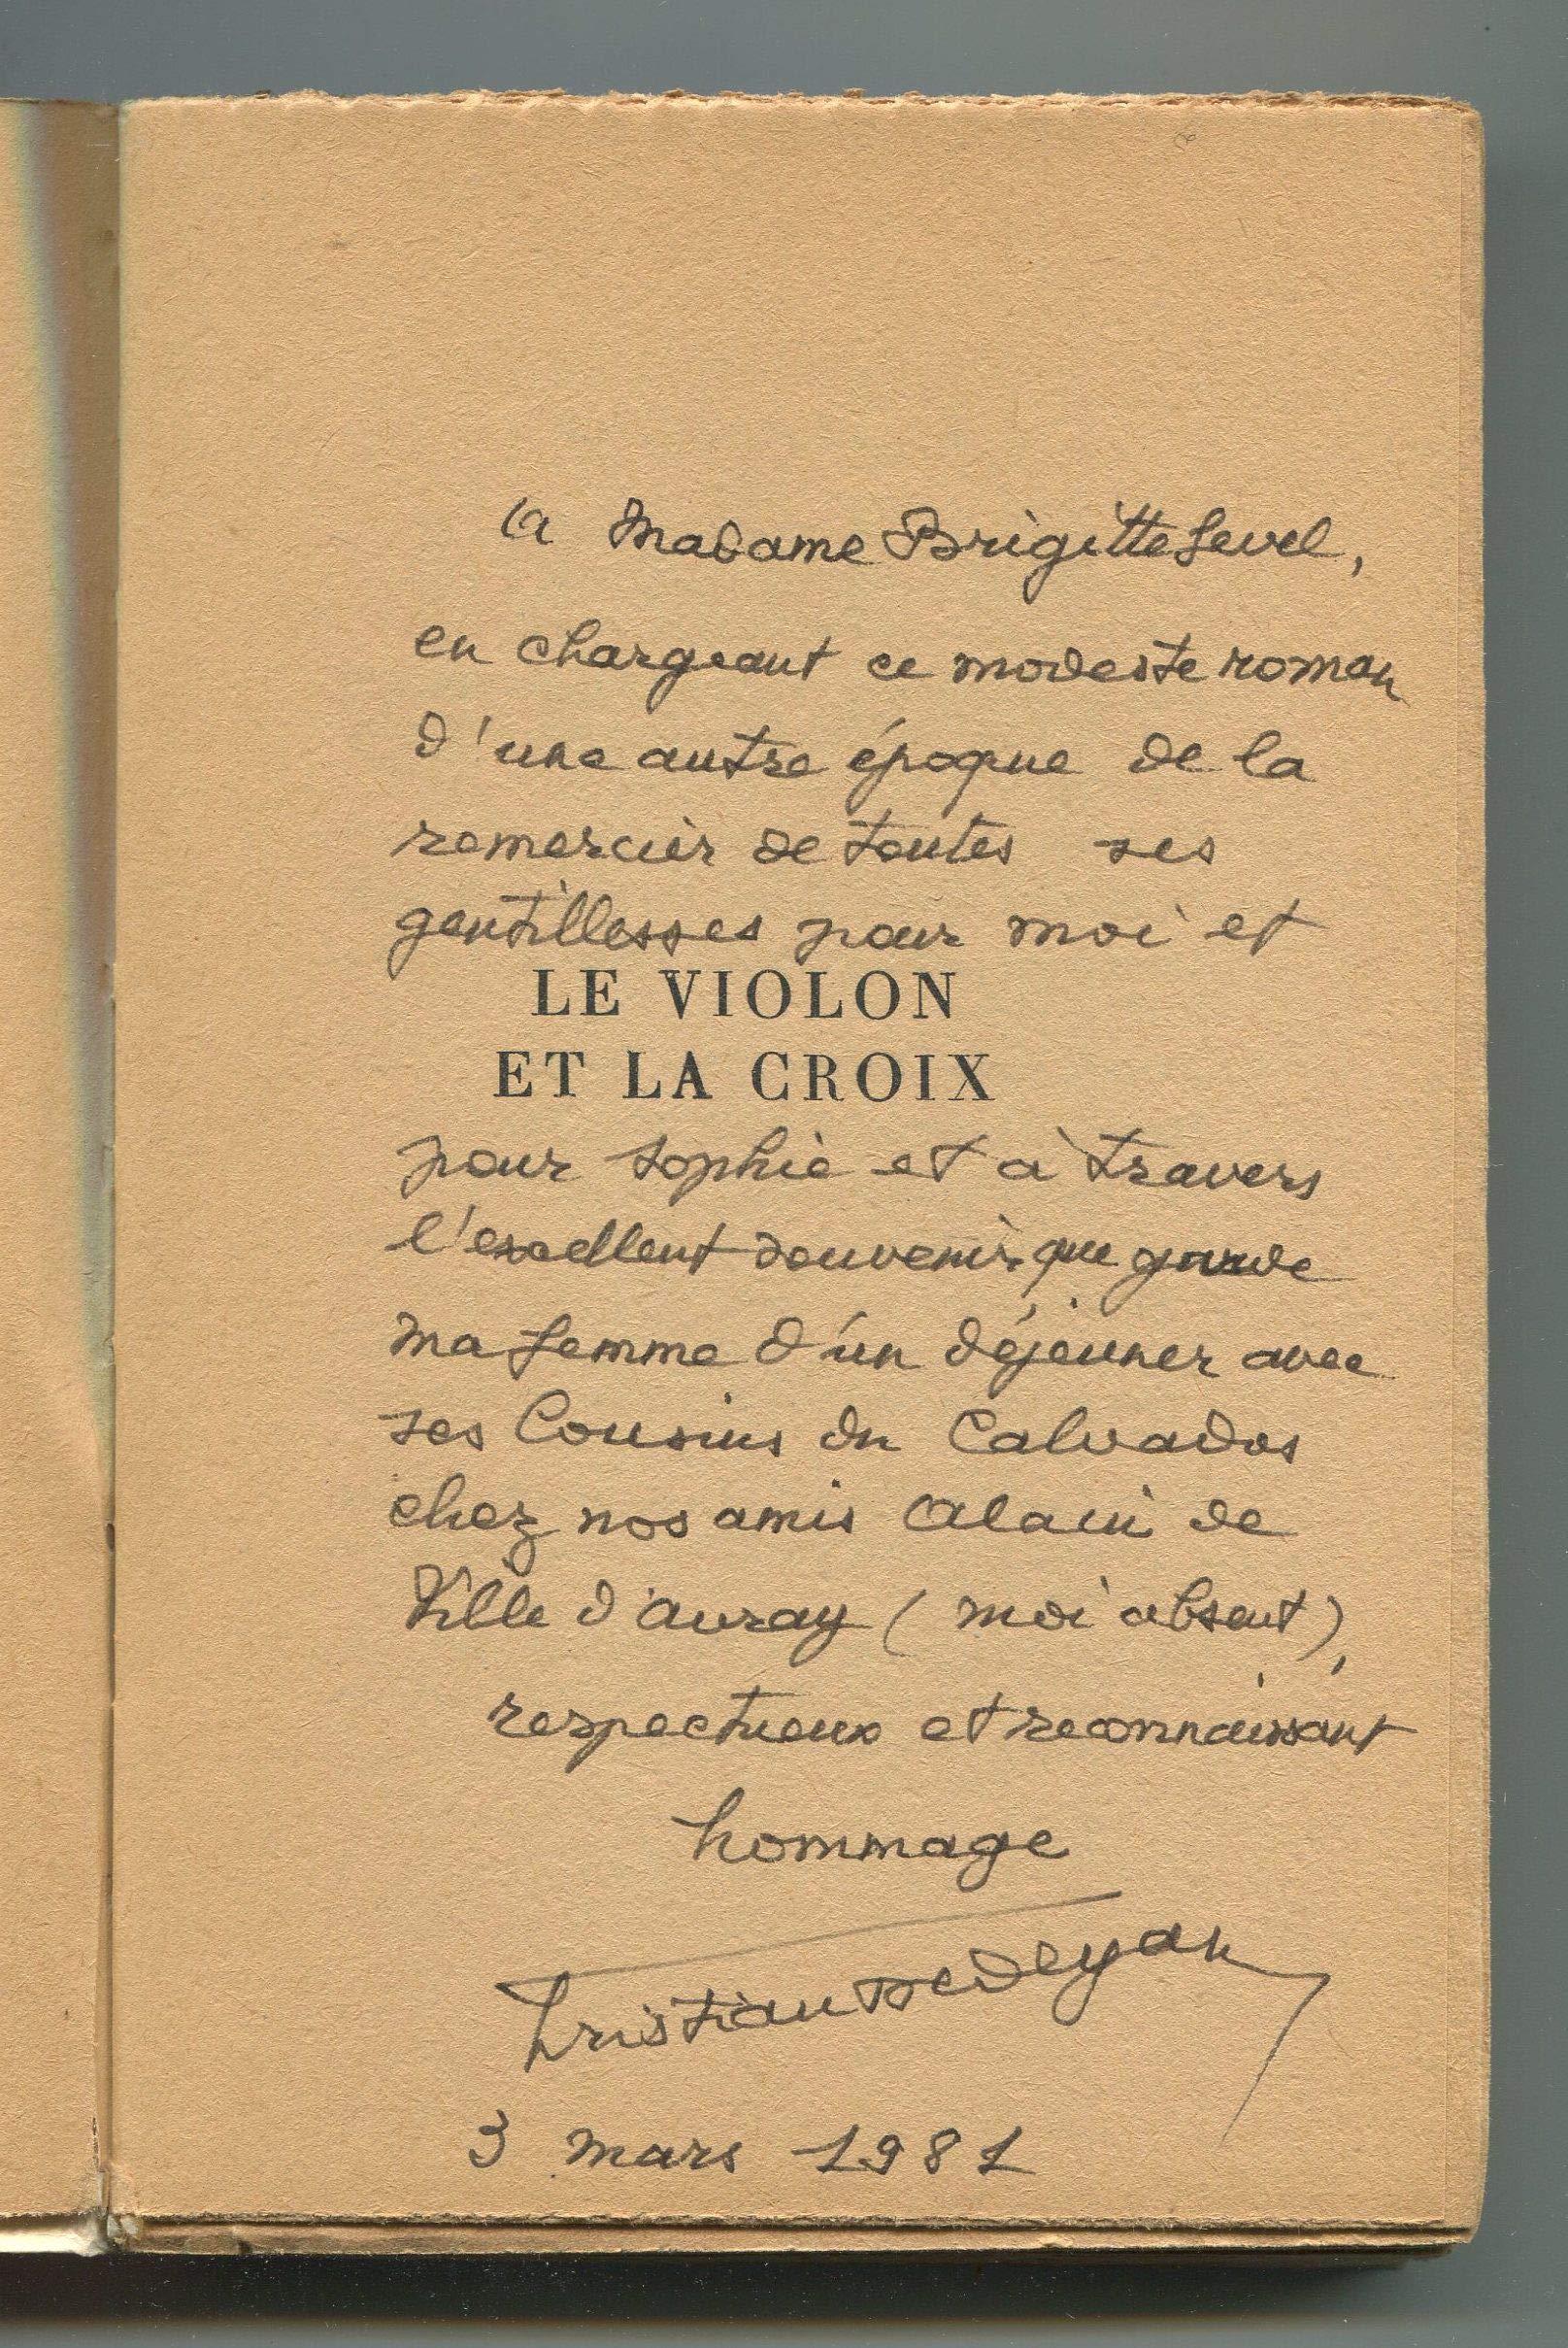 A Madame Brigitte Level,
en chargeant ce modeste roman
d'une autre époque de la
remercier de toutes ses
gentillesses pour moi et
LE VIOLON
ET LA CROIX
pour Sophie et à travers
l'excellent souvenir que garde
ma femme d'un déjeuner avec
ses Cousins du Calvados
chez nos amis Alain de
Ville d'avray (moi absent),
respectueux et reconnaissant
hommage
Christian Dedeyan
3 mars 1981